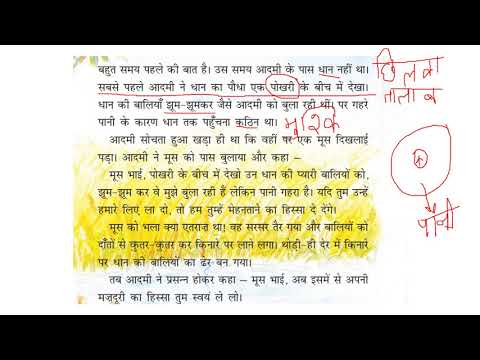 बहुत समय पहले की बात है। उस समय आदमी के पास धान नहीं था।
सबसे पहले आदमी ने धान का पौधा एक पोखरी के बीच में देखा।
धान की बालियाँ झूम-झूमकर जैसे आदमी को बुला रही थीं। पर गहरे
पानी के कारण धान तक पहुँचना कठिन था।
आदमी सोचता हुआ खड़ा ही था कि वहीं पर एक मूस दिखलाई
पड़ा। आदमी ने मूस को पास बुलाया और कहा –
मूस भाई, पोखरी के बीच में देखो उन धान की प्यारी बालियों को,
झूम-झूम कर वे मुझे बुला रही हैं लेकिन पानी गहरा है। यदि तुम उन्हें
हमारे लिए ला दो, तो हम तुम्हें मेहनताने का हिस्सा दे देंगे।
मूस को भला क्या एतराज़ था। वह सरसर तैर गया और बालियों को
दाँतों से कुतर-कुतर कर किनारे पर लाने लगा। थोड़ी-ही देर में किनारे
पर धान की बालियों का ढेर बन गया।
तब आदमी ने प्रसन्न होकर कहा – मूस भाई, अब इसमें से अपनी
मज़दूरी का हिस्सा तुम स्वयं ले लो।
छिलका
तालाब
पानी